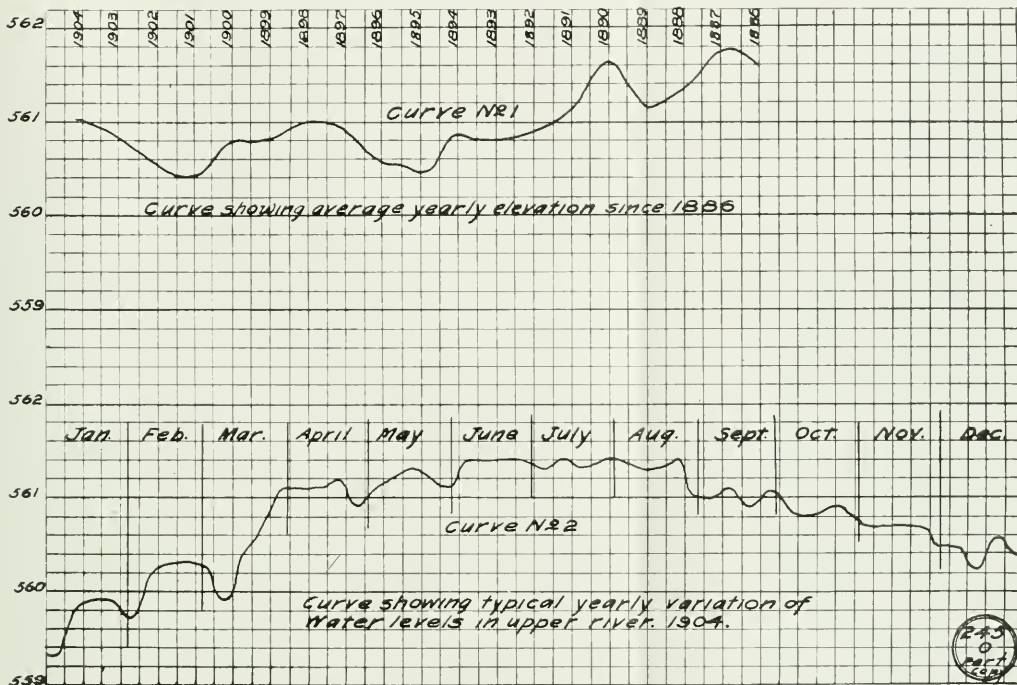 562
1904 1903 1902 1901 1900 1899 1898 1897 1896 1895 1894 1893 1892 1891 1890 1889 1888 1887 1886
561
Curve №1
560
Curve showing average yearly elevation since 1886
559
562
Jan. Feb. Mar. April May June July Aug. Sept. Oct. Nov. Dec.
561
Curve №2
560
Curve showing typical yearly variation of
Water levels in upper river. 1904.
559
245
0
part
copy